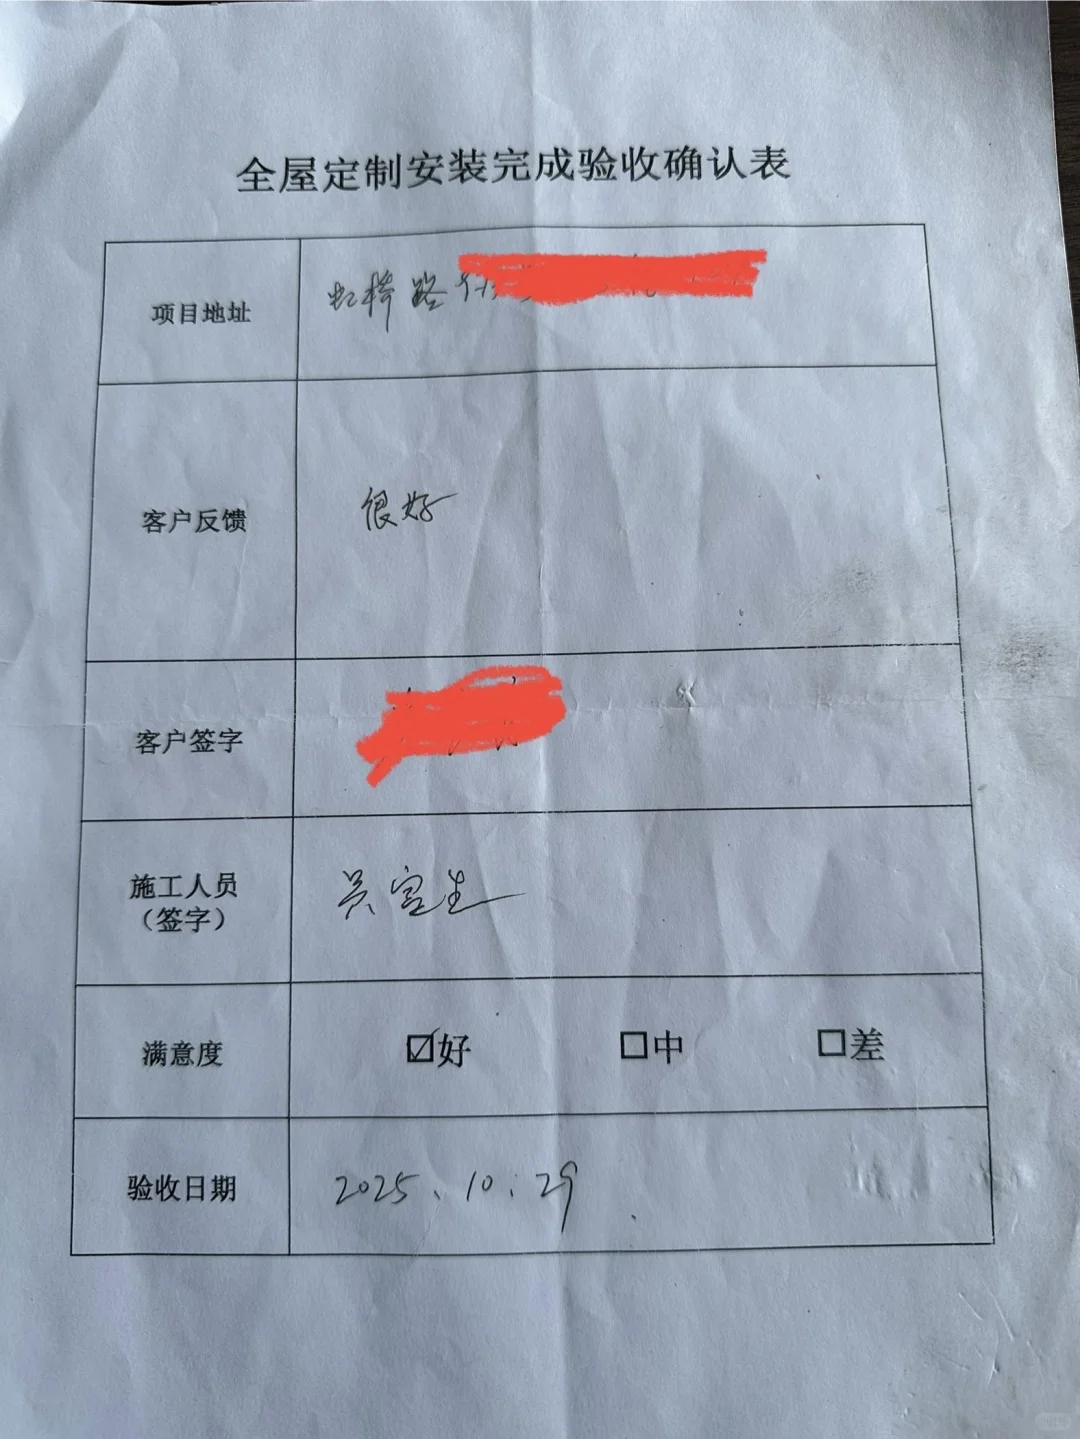 全屋定制安装完成验收确认表
项目地址
虹桥路
客户反馈
很好
客户签字
施工人员
（签字）
吴宝生
满意度
☑好 □中 □差
验收日期
2025、10、29